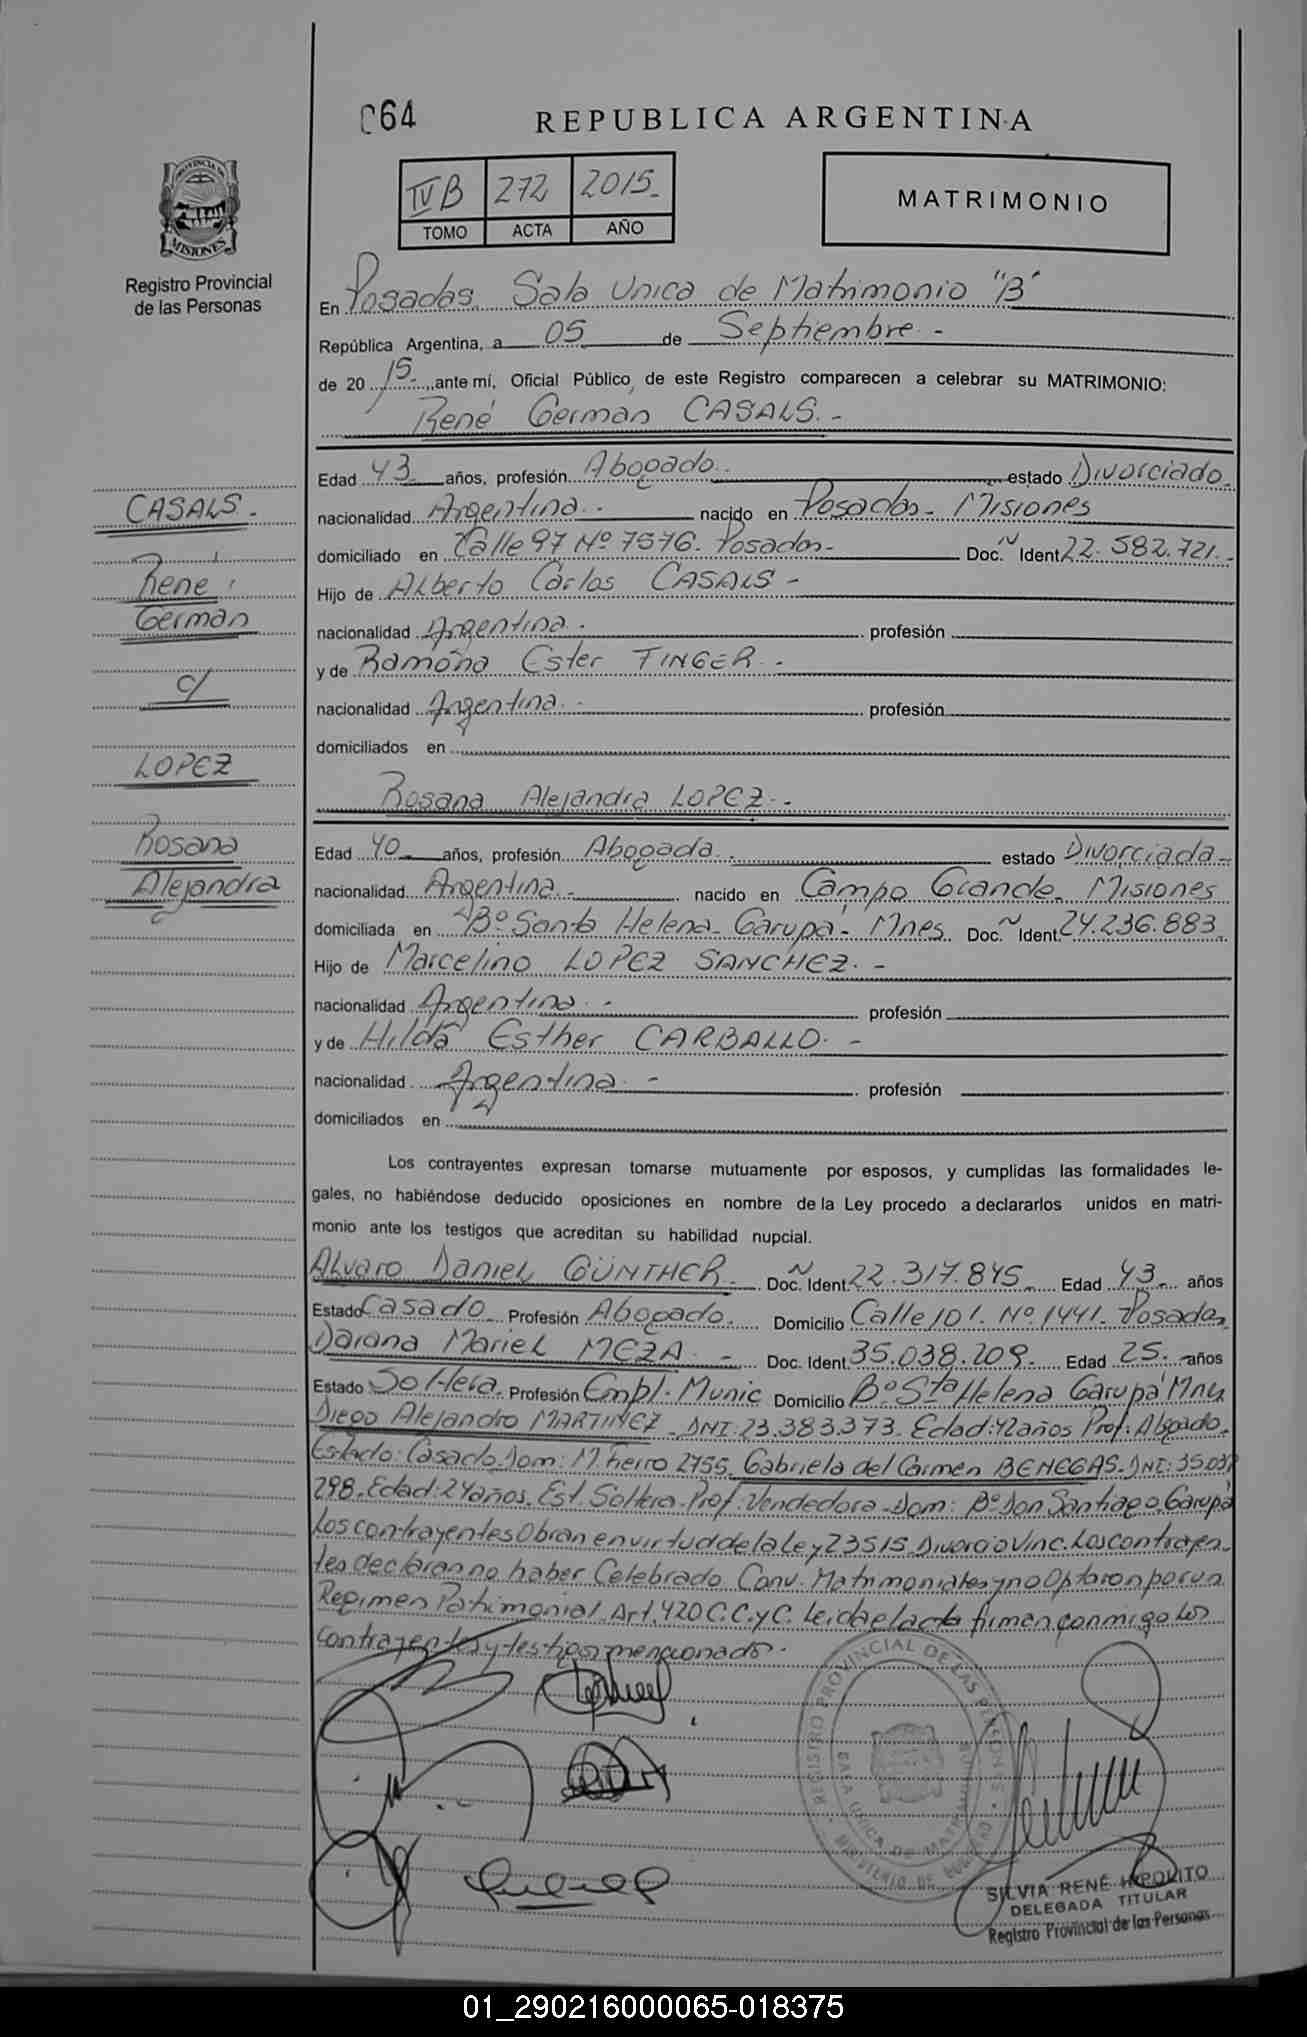 064
REPUBLICA ARGENTINA
IV B 272 2015
TOMO ACTA AÑO
MATRIMONIO
PROVINCIA DE
MISIONES
Registro Provincial
de las Personas
En Posadas. Sala Unica de Matrimonio "B"
República Argentina, a 05 de Septiembre -
de 20 15 ante mí, Oficial Público, de este Registro comparecen a celebrar su MATRIMONIO:
René Germán CASALS. -
Edad 43 años, profesión Abogado. estado Divorciado.
CASALS. -
nacionalidad Argentina. - nacido en Posadas - Misiones
domiciliado en Calle 97 Nº 7576. Posadas - Doc. Ident 22.582.721. -
René
Hijo de Alberto Carlos CASALS -
Germán
nacionalidad Argentina. - profesión
y de Ramona Ester FINGER. -
c/
nacionalidad Argentina. - profesión
domiciliados en
LOPEZ
Rosana Alejandra LOPEZ. -
Rosana
Edad 40 años, profesión Abogada. estado Divorciada -
Alejandra
nacionalidad Argentina. - nacido en Campo Grande. Misiones
domiciliada en Bº Santa Helena - Garupá - Mnes. Doc. Ident. 24.236.883.
Hijo de Marcelino LOPEZ SANCHEZ. -
nacionalidad Argentina. - profesión
y de Hilda Esther CARBALLO. -
nacionalidad Argentina. - profesión
domiciliados en
Los contrayentes expresan tomarse mutuamente por esposos, y cumplidas las formalidades le-
gales, no habiéndose deducido oposiciones en nombre de la Ley procedo a declararlos unidos en matri-
monio ante los testigos que acreditan su habilidad nupcial.
Alvaro Daniel GÜNTHER. Doc. Ident. 22.317.845 Edad 43 años
Estado Casado Profesión Abogado. Domicilio Calle 101. Nº 1441. Posadas
Daiana Mariel MEZA. - Doc. Ident. 35.038.209. Edad 25. años
Estado Soltera. Profesión Empl. Munic Domicilio Bº Sta Helena Garupá Mnes
Diego Alejandro MARTINEZ - DNI: 23.383.373. Edad: 42 años Prof: Abogado.
Estado: Casado. Dom: M. Fierro 2755. Gabriela del Carmen BENEGAS. DNI: 35.038
298. Edad: 24 años. Est. Soltera. Prof: Vendedora. Dom: Bº Don Santiago. Garupá
Los contrayentes Obran en virtud de la Ley 23515 Divorcio Vinc. Los contrayen-
tes declaran no haber Celebrado Conv. Matrimoniales y no Optaron por un
Regimen Patrimonial. Art. 420 C.C.yC. Leida el acta firman conmigo los
contrayentes y testigos mencionados. -
REGISTRO PROVINCIAL DE LAS PERSONAS
SALA UNICA DE MATRIMONIO
MINISTERIO DE GOBIERNO
SILVIA RENÉ HIPOLITO
DELEGADA TITULAR
Registro Provincial de las Personas
01_290216000065-018375